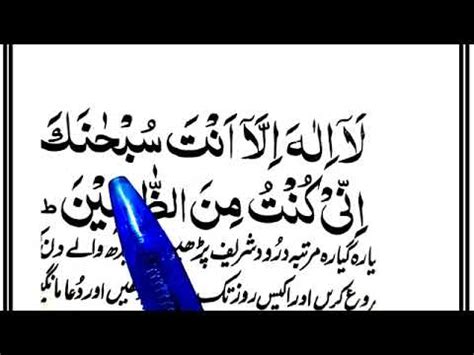 لَآ اِلٰهَ اِلَّآ اَنْتَ سُبْحٰنَكَ
اِنِّیْ كُنْتُ مِنَ الظّٰلِمِیْنَ ط
یارہ گیارہ مرتبہ درود شریف پڑھیں بدھ والے دن
روع کریں اور اکیس روز تک اور دُعا